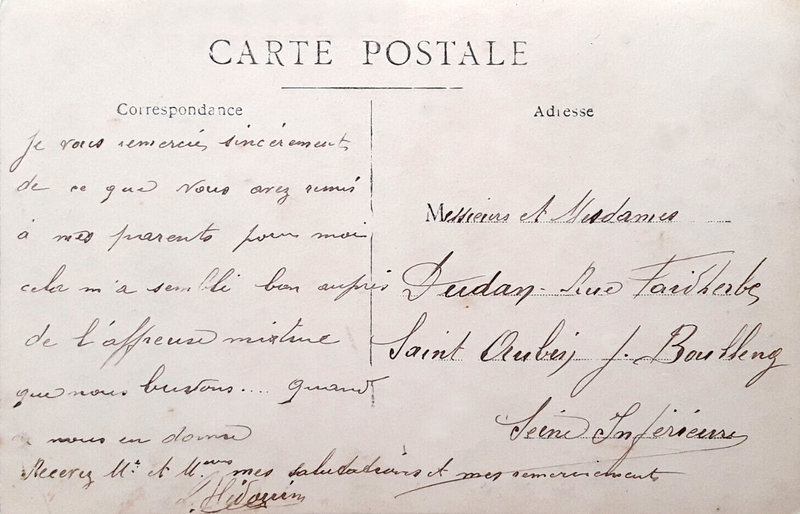 CARTE POSTALE
Correspondance
Je vous remercie sincèrement
de ce que vous avez remis
à mes parents pour moi
cela m'a semblé bon auprès
de l'affreuse mixture
que nous buvons.... quand
nous en donne
Recevez Mr. et Mmes mes salutations et mes remerciements
Adresse
Messieurs et Mesdames
Dudan - Rue Faidherbe
Saint Aubin J. Boulleng
Seine Inférieure